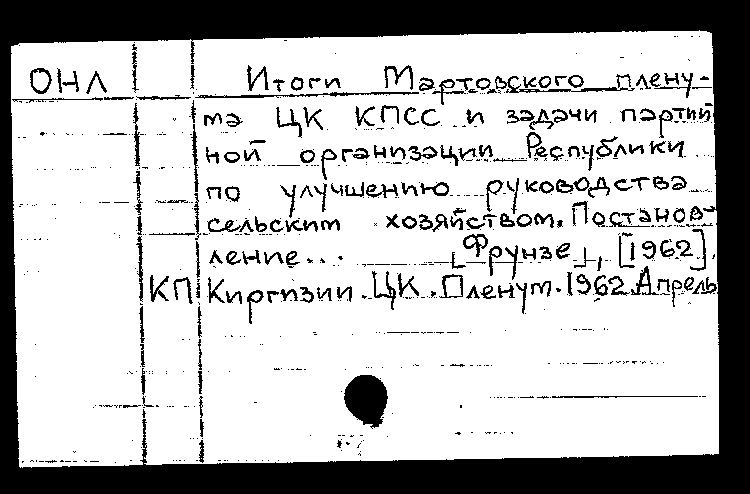 ОНЛ Итоги Мартовского плену-
ма ЦК КПСС и задачи партий
ной организации Республики
по улучшению руководства
сельским хозяйством. Постанов-
ление... [Фрунзе], [1962].
КП Киргизии. ЦК. Пленум. 1962. Апрель